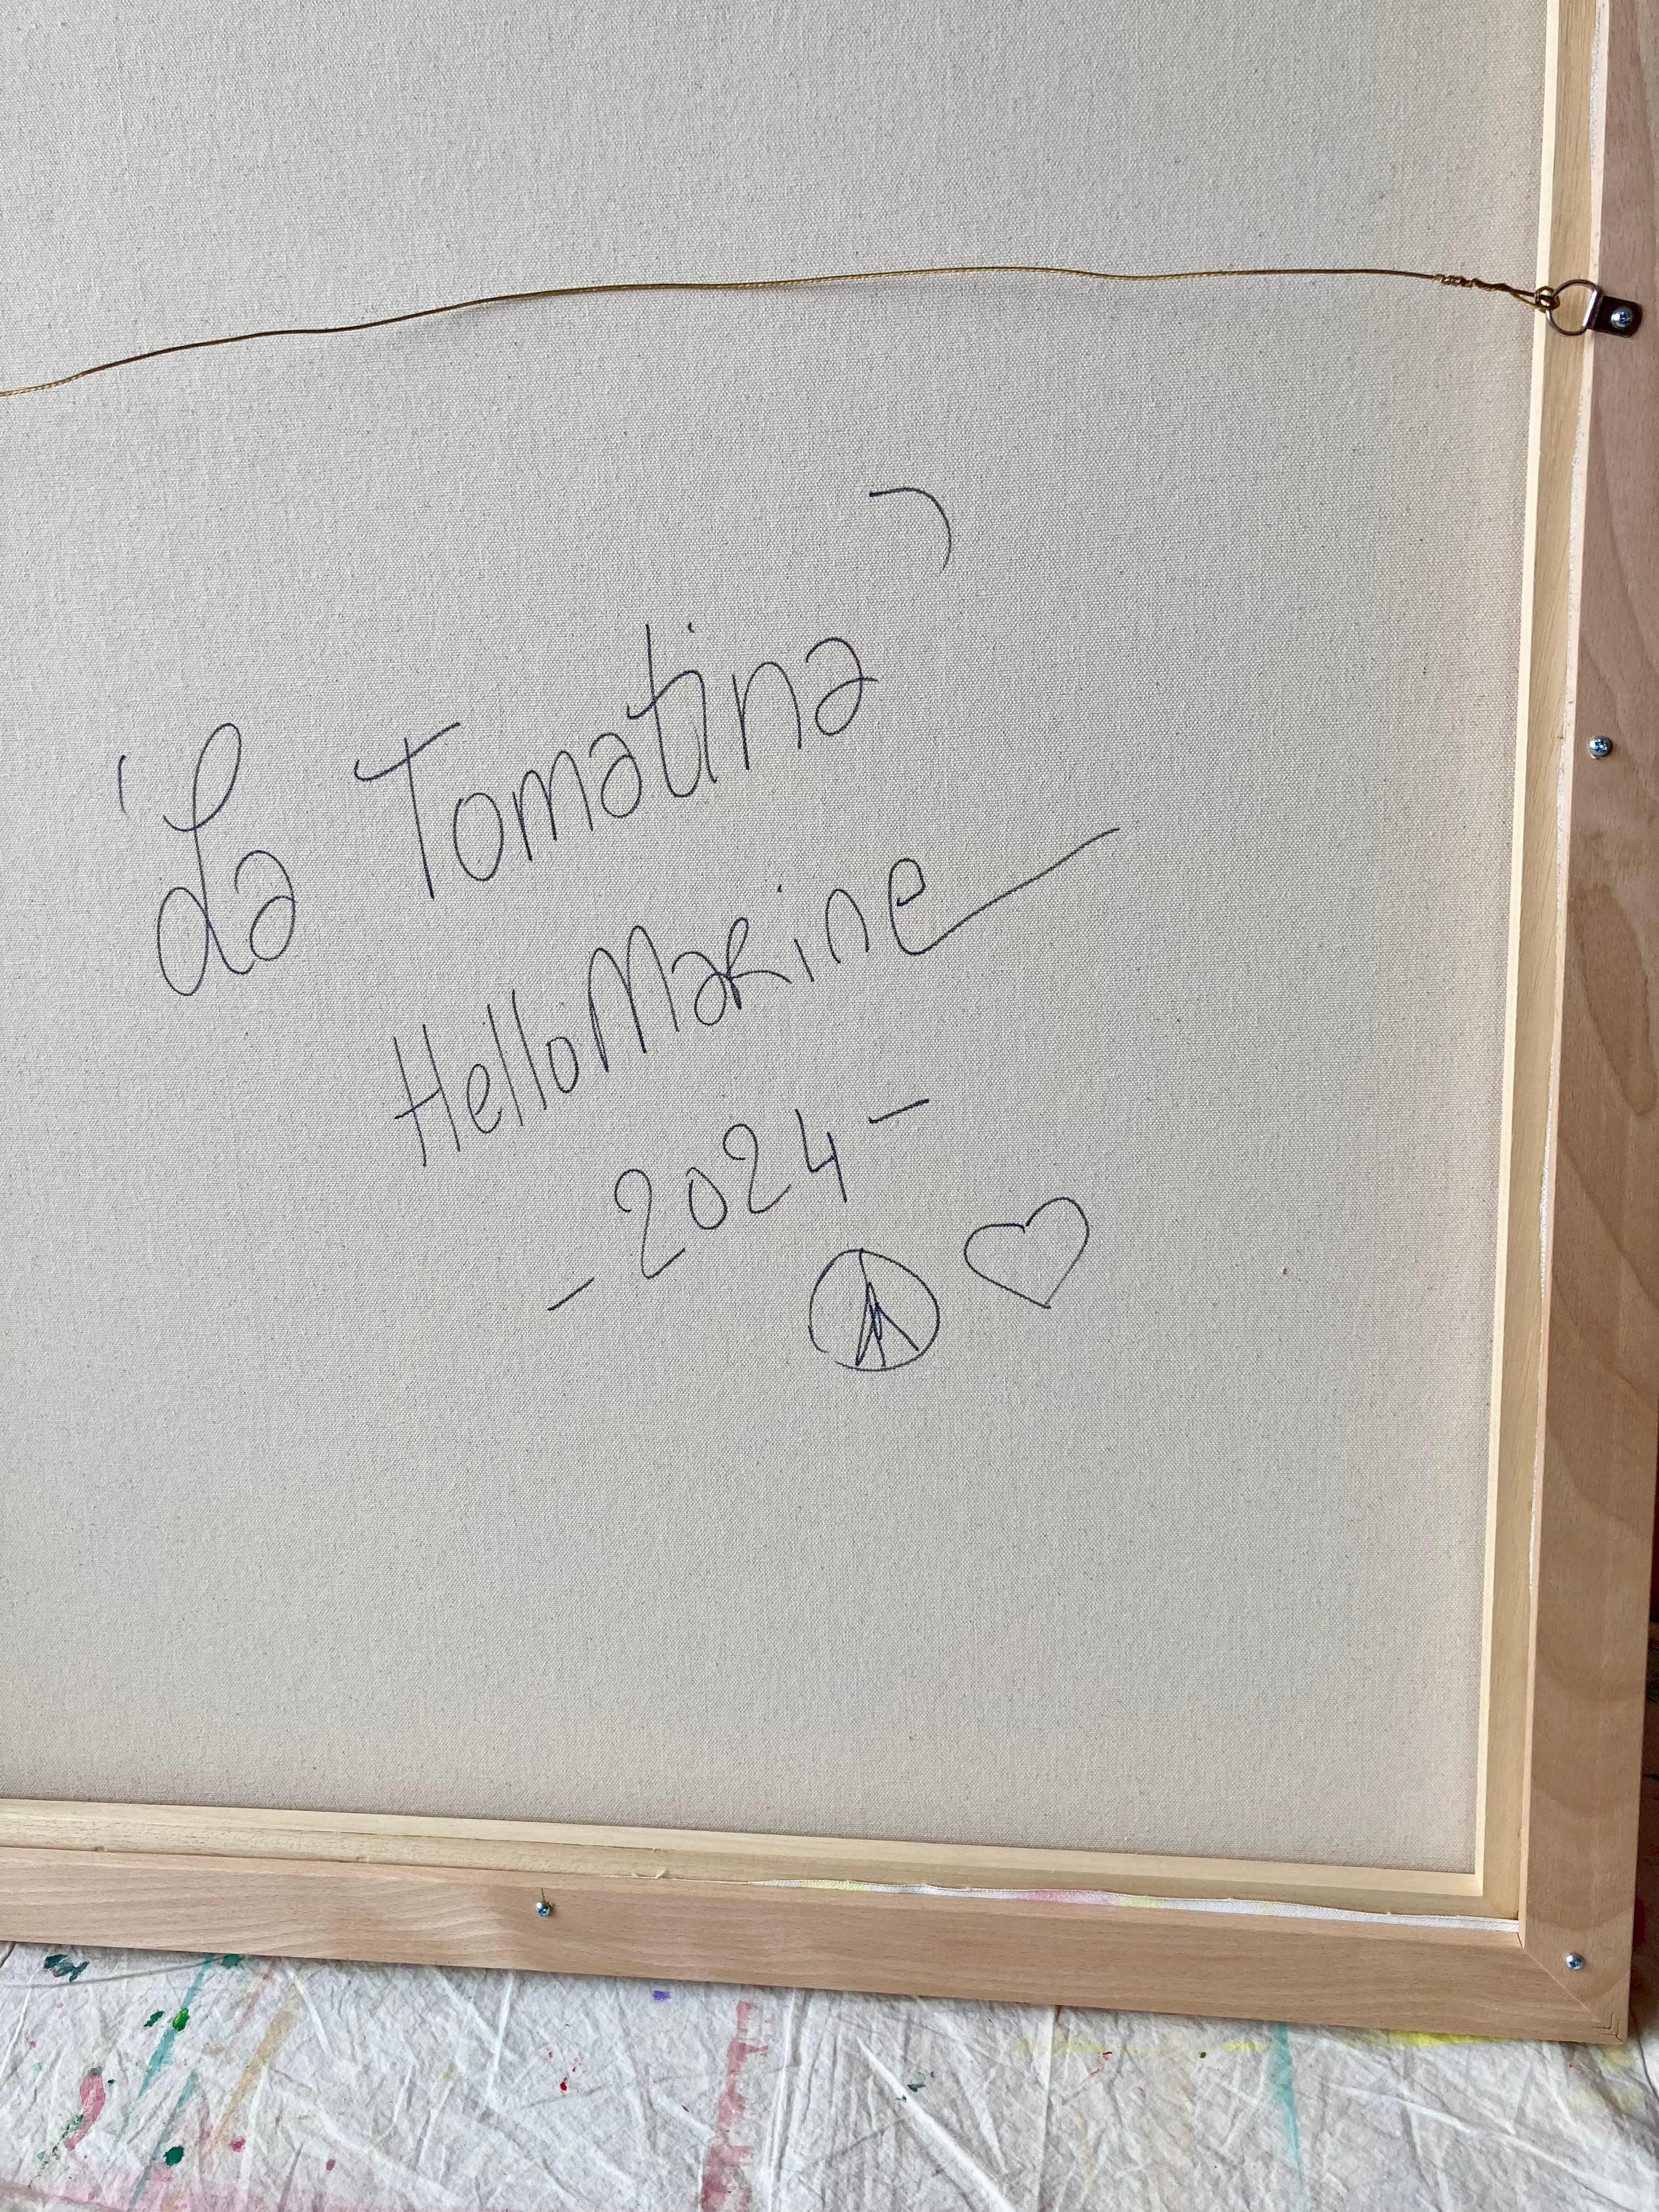 'La Tomatina'
HelloMarine
-2024-